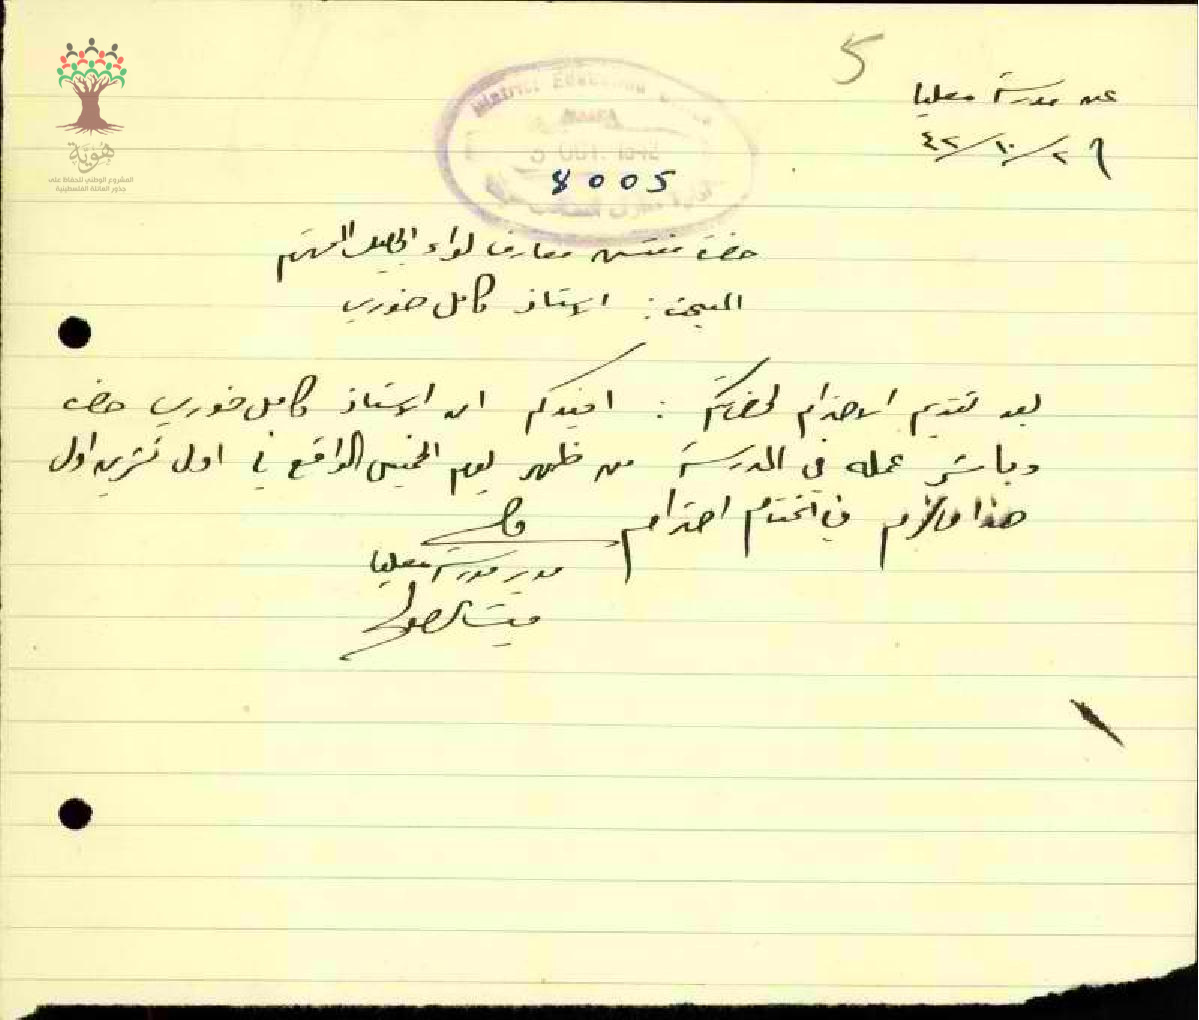 5
عن مدرسة معليا
٤٢/١٠/٢
District Education Office
HAIFA
5 OCT. 1942
8005
هوية
المشروع الوطني للحفاظ على
جذور العائلة الفلسطينية
حضرة مفتش معارف لواء الجليل المحترم
المبحث: الاستاذ كامل خوري
بعد تقديم الاحترام لحضرتكم : افيدكم ان الاستاذ كامل خوري حضر
وباشر عمله في المدرسة من ظهر يوم الخميس الواقع في اول تشرين اول
هذا ما لزم في الختام احترام
مدير مدرسة معليا